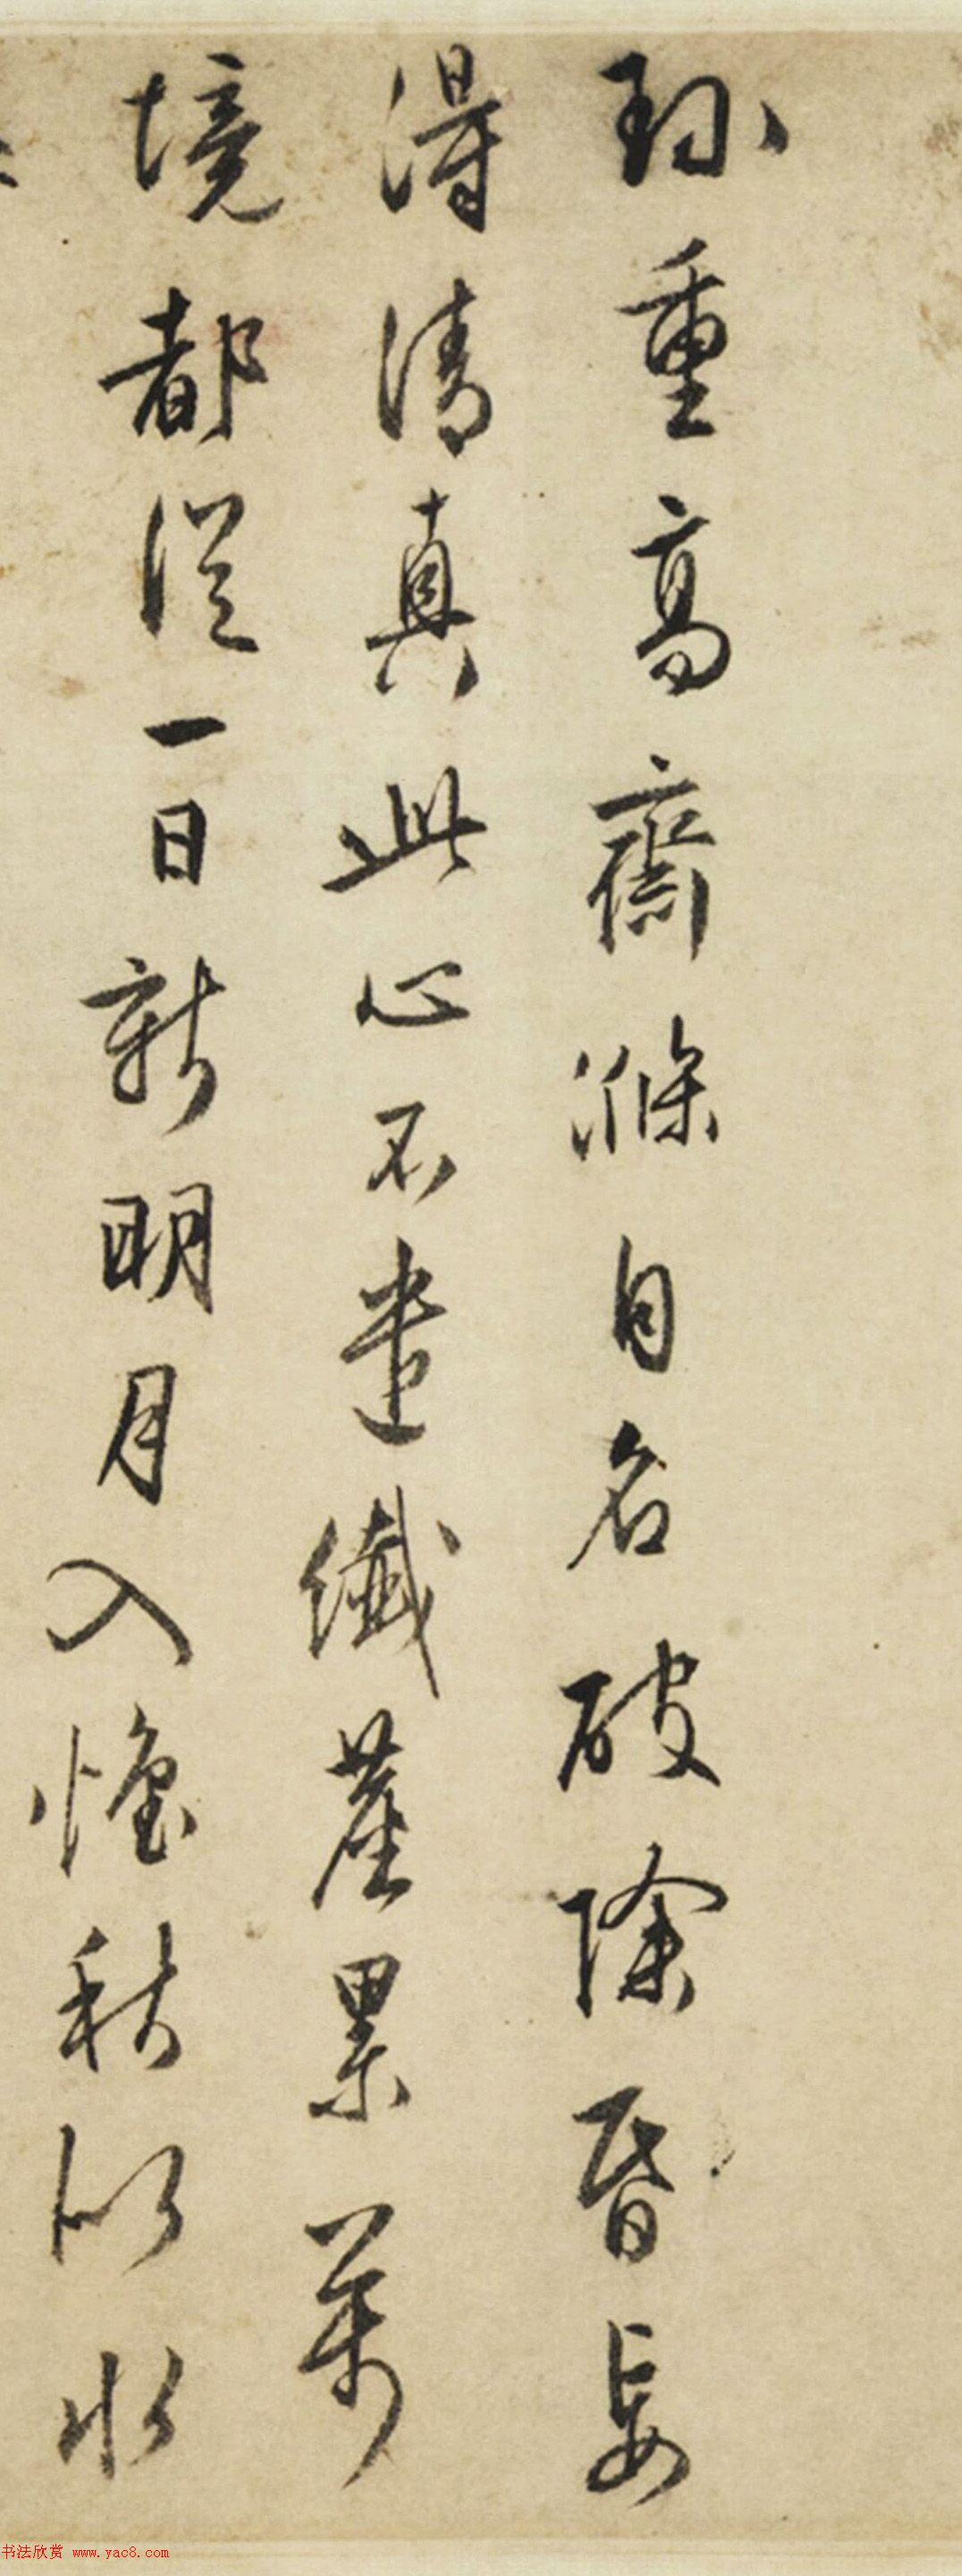 珎重高齋滌自名破除昏妄
得清真此心不遣纖塵累萬
境都從一日新明月入懷秋似水
书法欣赏 www.yac8.com